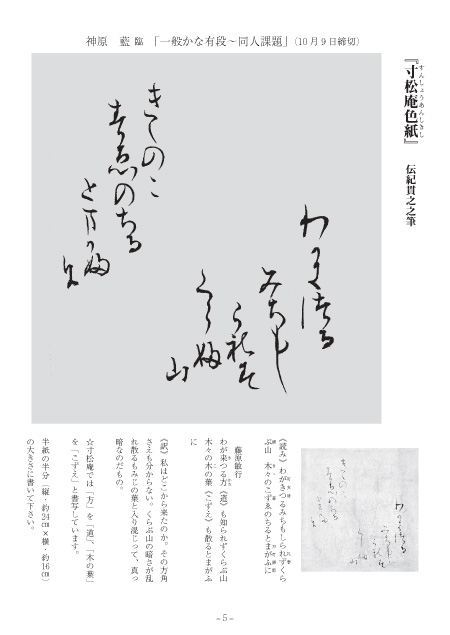 神原　藍 臨 「一般かな有段～同人課題」（10月9日締切）
『寸松庵色紙』 伝紀貫之之筆
すんしょうあんしきし
わがきつる
みちも
しられず
くらぶ
山
きゞのこ
ずゑのちる
とまがふ
に
《読み》わがきつるみちもしられずくら
ぶ山　木々のこずゑのちるとまがふに
藤原敏行
わが来つる方《道》も知られずくらぶ山
木々の木の葉《こずえ》も散るとまがふ
に
《訳》私はどこから来たのか。その方角
さえも分からない。くらぶ山の暗さが乱
れ散るもみじの葉と入り混じって、真っ
暗なのだもの。
☆寸松庵では「方」を「道」、「木の葉」
を「こずえ」と書写しています。
半紙の半分（縦・約24㎝×横・約16㎝）
の大きさに書いて下さい。
－5－